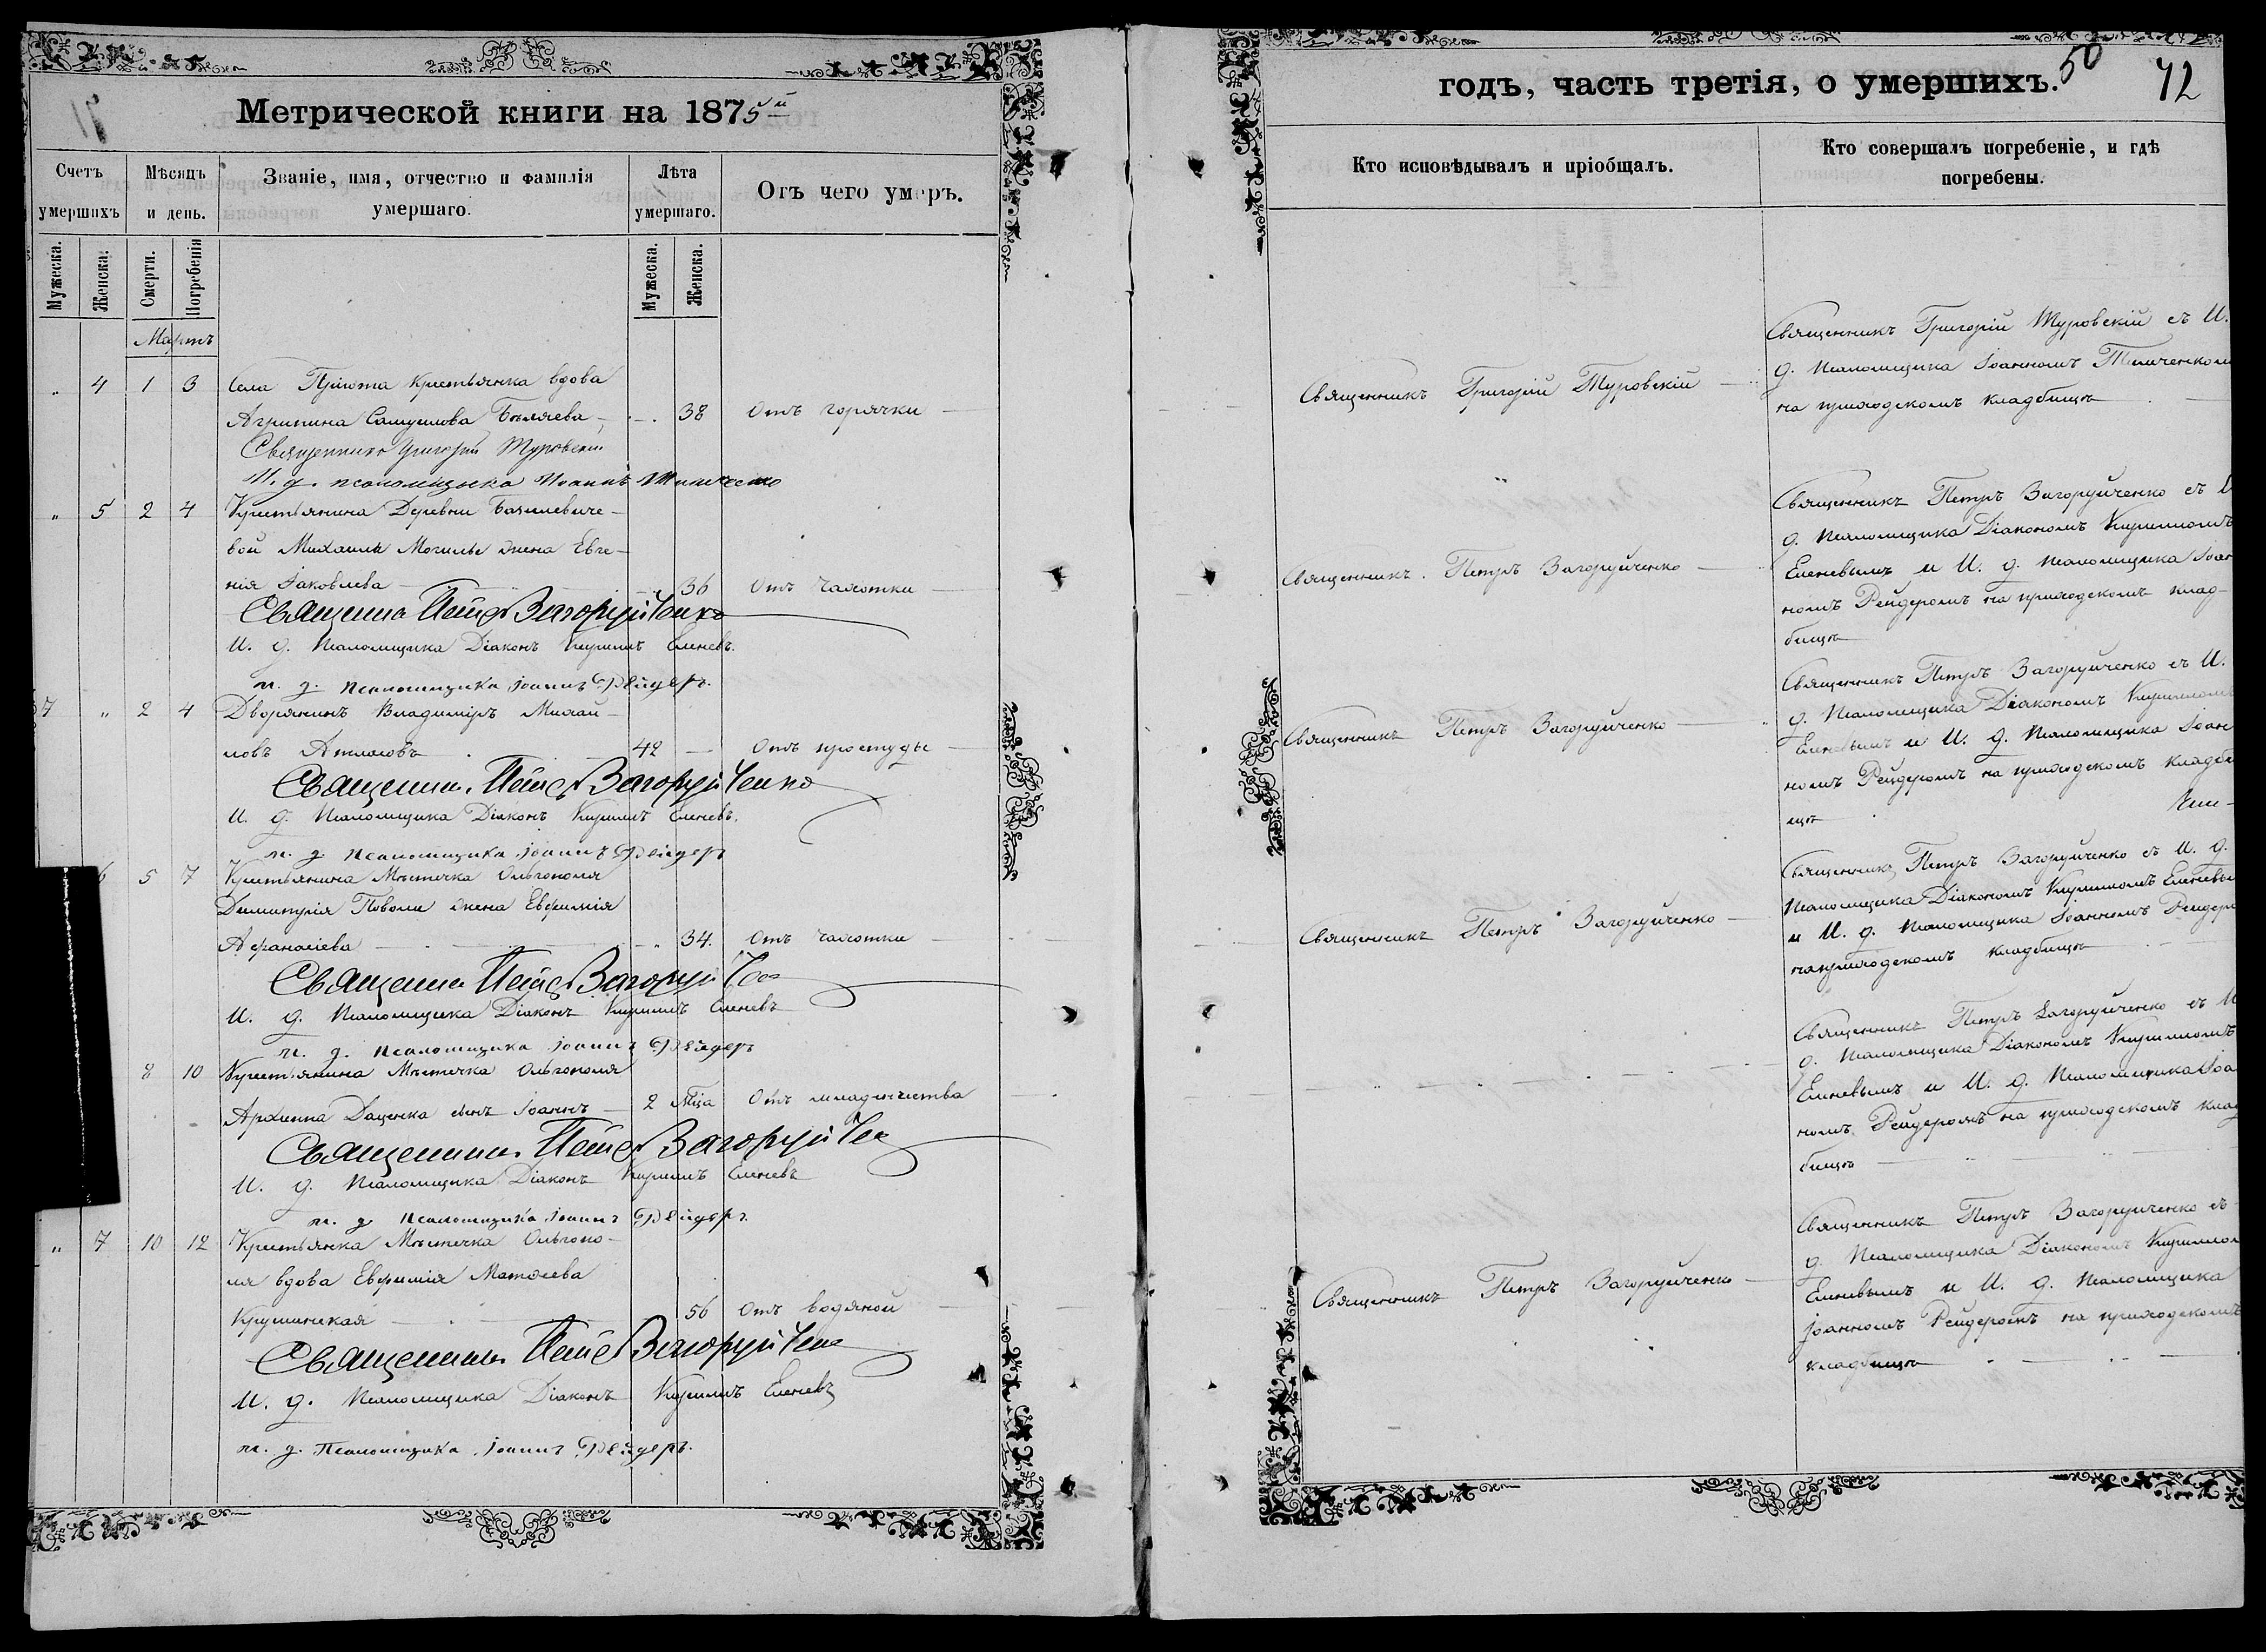 Метрической книги на 1875й
Счетъ умершихъ
Мѣсяцъ и день.
Званіе, имя, отчество и фамилія умершаго.
Лѣта умершаго.
Отъ чего умеръ.
Мужеска.
Женска.
Смерти.
Погребенія
Мужеска.
Женска.
Мартъ
„ 4 1 3 Села Пріюта крестьянка вдова
Агрипина Самуилова Бѣляева 38 Отъ горячки
Священникъ Григорій Туровскій
И. д. псаломщика Іоаннъ
„ 5 2 4 Крестьянина Деревни
вой Михаила Могилы жена Евге-
нія Іаковлева 36 Отъ чахотки
Священникъ Петръ Загоруйченко
И. д. Псаломщика Діаконъ Кириллъ Еленевъ.
и. д. псаломщика Іоаннъ Рейдеръ.
7 „ 2 4 Дворянинъ Владиміръ Михай-
ловъ 42 Отъ простуды
Священникъ Петръ Загоруйченко
И. д. Псаломщика Діаконъ Кириллъ Еленевъ.
и. д. псаломщика Іоаннъ Рейдеръ
6 5 7 Крестьянина Мѣстечка Ольгополя
Димитрія жена Евфимія
Афанасіева 34. Отъ чахотки
Священникъ Петръ Загоруйченко
И. д. Псаломщика Діаконъ Кириллъ Еленевъ
и. д. псаломщика Іоаннъ Рейдеръ
8 10 Крестьянина Мѣстечка Ольгополя
Архиппа Даценка сынъ Іоаннъ 2 мца Отъ младенчества
Священникъ Петръ Загоруйченко
И. д. Псаломщика Діаконъ Кириллъ Еленевъ
и. д. псаломщика Іоаннъ Рейдеръ.
„ 7 10 12 Крестьянка Мѣстечка Ольгопо-
ля вдова Евфимія Матѳеева
Крушинская 56 Отъ водяной
Священникъ Петръ Загоруйченко
И. д. Псаломщика Діаконъ Кириллъ Еленевъ
и. д. Псаломщика Іоаннъ Рейдеръ.
годъ, часть третія, о умершихъ.
50
72
Кто исповѣдывалъ и пріобщалъ.
Кто совершалъ погребеніе, и гдѣ погребены.
Священникъ Григорій Туровскій
Священникъ Григорій Туровскій съ И.
д. Псаломщика Іоанномъ
на приходскомъ кладбищѣ
Священникъ Петръ Загоруйченко
Священникъ Петръ Загоруйченко съ И
д. Псаломщика Діакономъ Кирилломъ
Еленевымъ и И. д. Псаломщика Іоан
номъ Рейдеромъ на приходскомъ клад-
бищѣ
Священникъ Петръ Загоруйченко
Священникъ Петръ Загоруйченко съ И.
д. Псаломщика Діакономъ Кирилломъ
Еленевымъ и И. д. Псаломщика Іоан
номъ Рейдеромъ на приходскомъ кладби
щѣ
Священникъ Петръ Загоруйченко
Священникъ Петръ Загоруйченко съ И. д.
Псаломщика Діакономъ Кирилломъ Еленевы
и И. д. Псаломщика Іоанномъ Рейдеро
на приходскомъ кладбищѣ
Священникъ Петръ Загоруйченко съ И
д. Псаломщика Діакономъ Кирилломъ
Еленевымъ и И. д. Псаломщика Іоа
номъ Рейдеромъ на приходскомъ клад
бищѣ
Священникъ Петръ Загоруйченко
Священникъ Петръ Загоруйченко съ
д. Псаломщика Діакономъ Кирилломъ
Еленевымъ и И. д. Псаломщика
Іоанномъ Рейдеромъ на приходскомъ
кладбищѣ